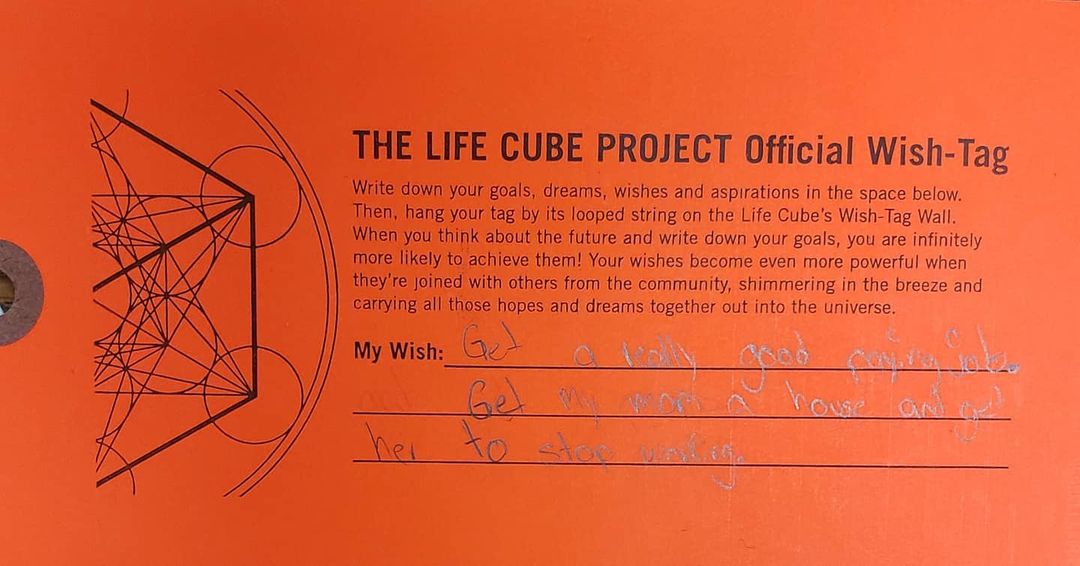 THE LIFE CUBE PROJECT Official Wish-Tag
Write down your goals, dreams, wishes and aspirations in the space below.
Then, hang your tag by its looped string on the Life Cube's Wish-Tag Wall.
When you think about the future and write down your goals, you are infinitely
more likely to achieve them! Your wishes become even more powerful when
they're joined with others from the community, shimmering in the breeze and
carrying all those hopes and dreams together out into the universe.
My Wish: Get a really good paying job.
Get my mom a house and get
her to stop working.